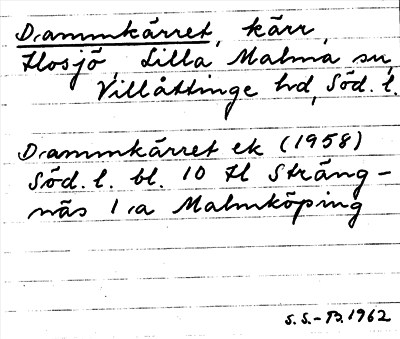 Dammkärret, kärr,
Hosjö, Lilla Malma sn,
Villåttinge hd, Söd. l.
Dammkärret ek (1958)
Söd. l. bl. 10 H Sträng-
näs 1:a Malmköping
S.S.-B. 1962